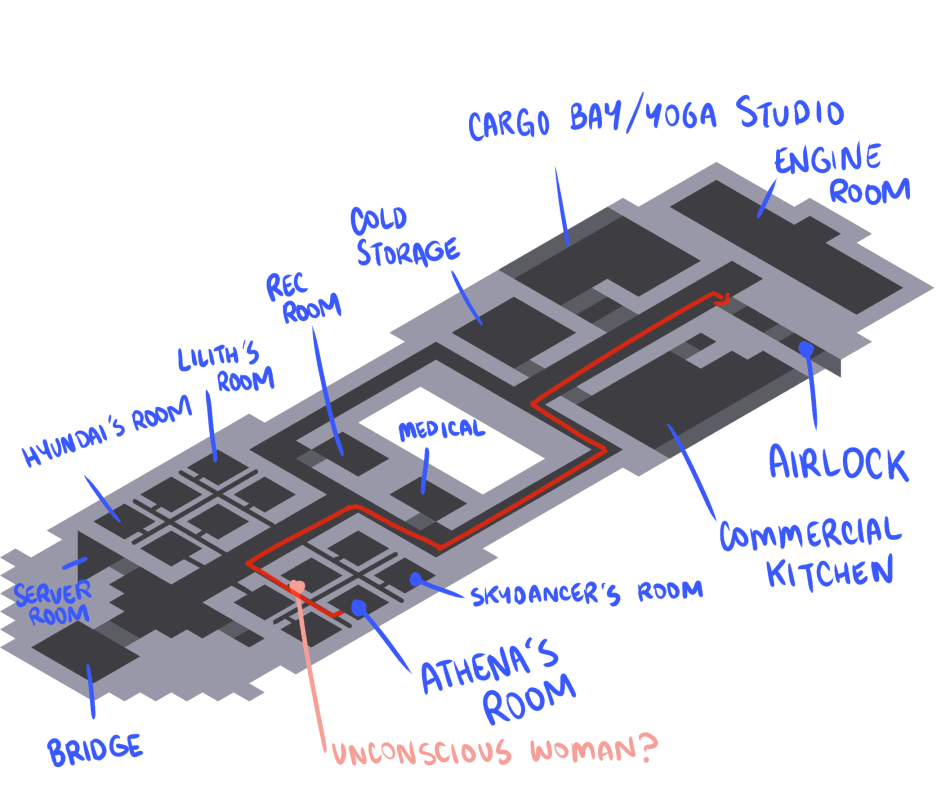 CARGO BAY/YOGA STUDIO
ENGINE
ROOM
COLD
STORAGE
REC
ROOM
LILITH'S
ROOM
HYUNDAI'S ROOM
MEDICAL
AIRLOCK
COMMERCIAL
KITCHEN
SERVER
ROOM
SKYDANCER'S ROOM
ATHENA'S
ROOM
BRIDGE
UNCONSCIOUS WOMAN?